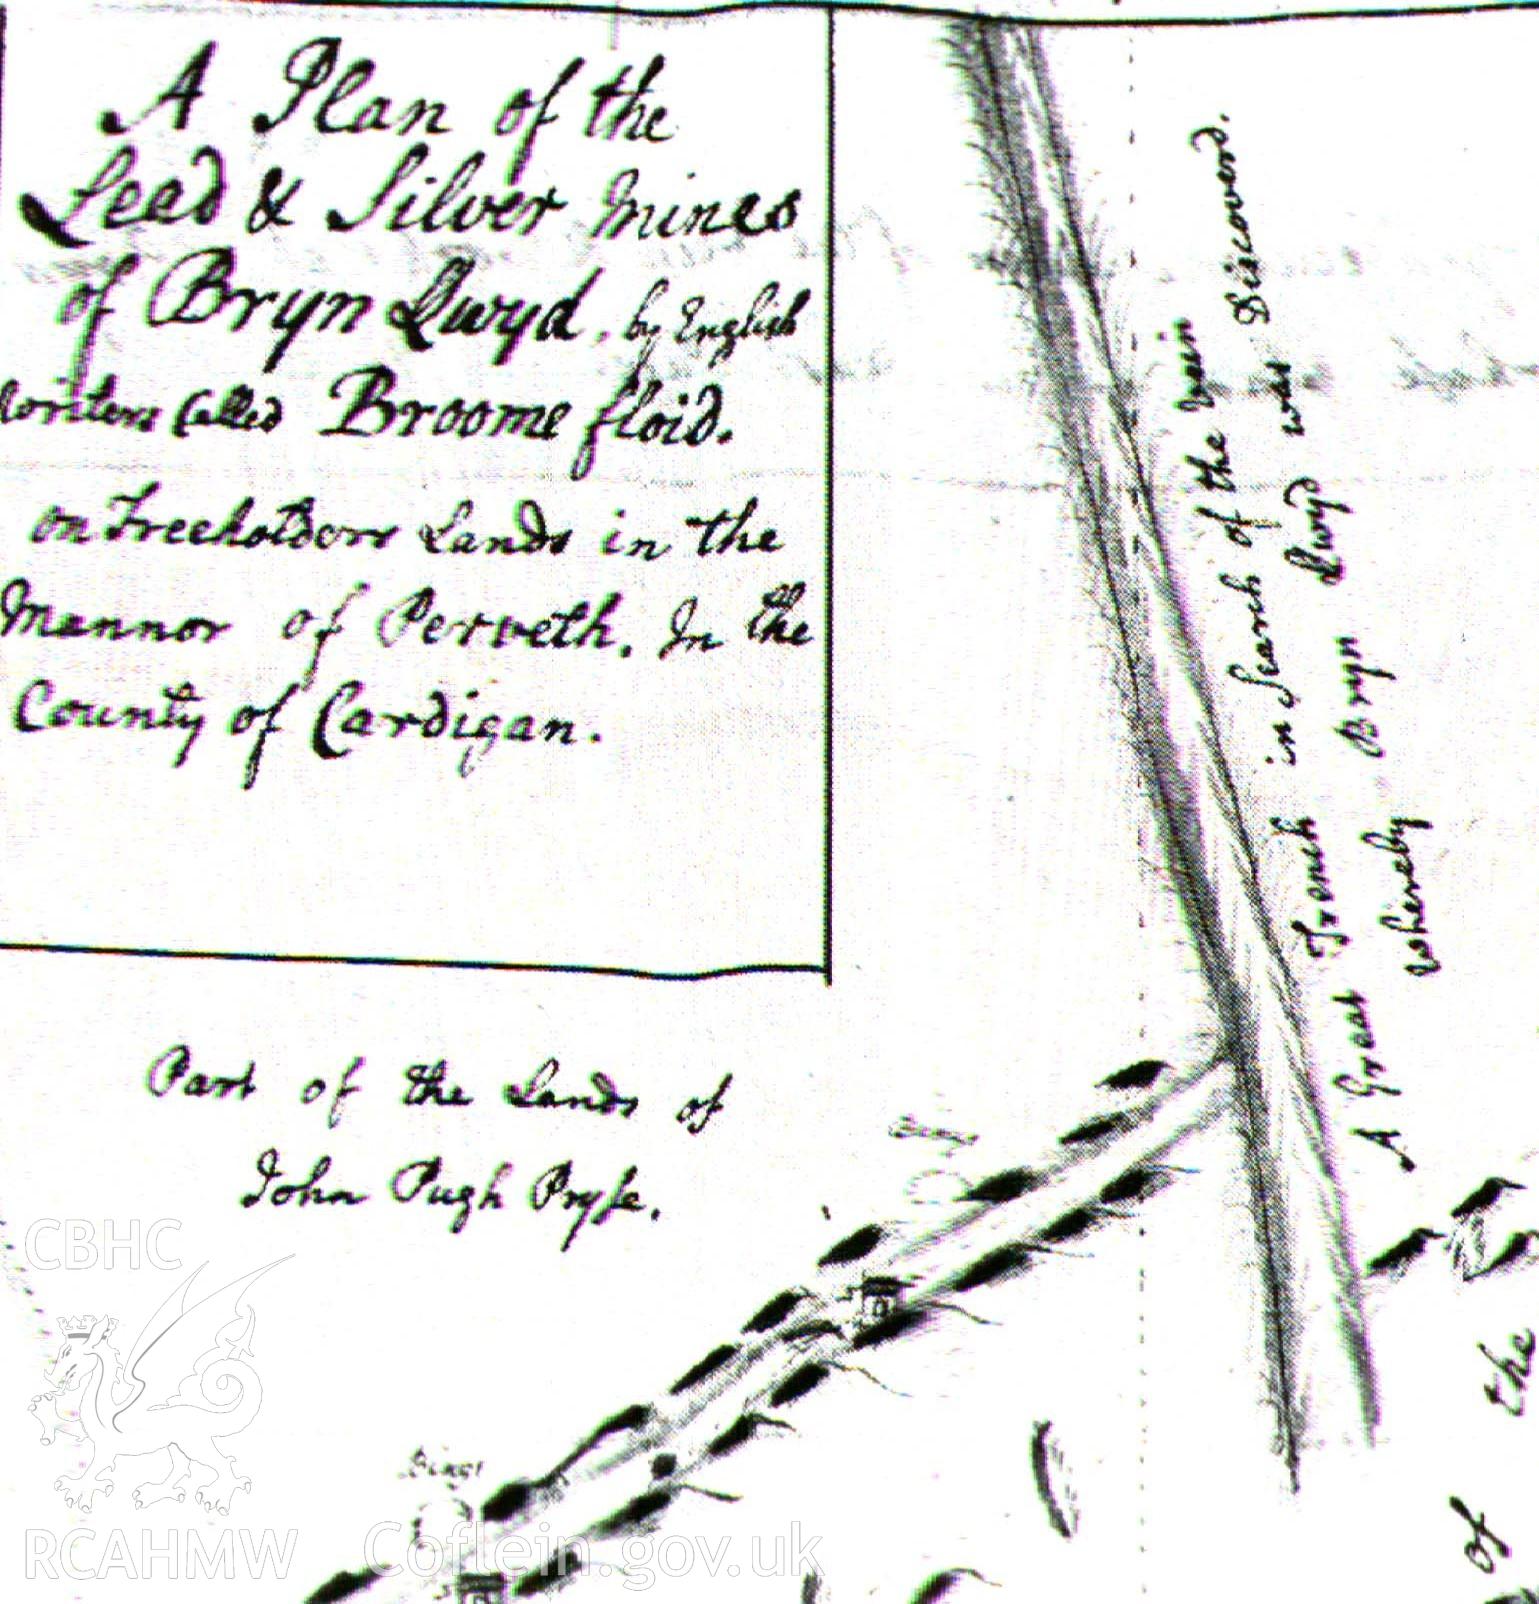 A Plan of the
Leed & Silver mines
of Bryn Lwyd, by English
writers Called Broome floid.
on Freeholders Lands in the
Mannor of Perveth. In the
County of Cardigan.
A Great Trench in Search of the vein
whereby Bryn Lwyd was Discovered.
Part of the Lands of
John Pugh Pryse.
of the
CBHC
RCAHMW
Coflein.gov.uk